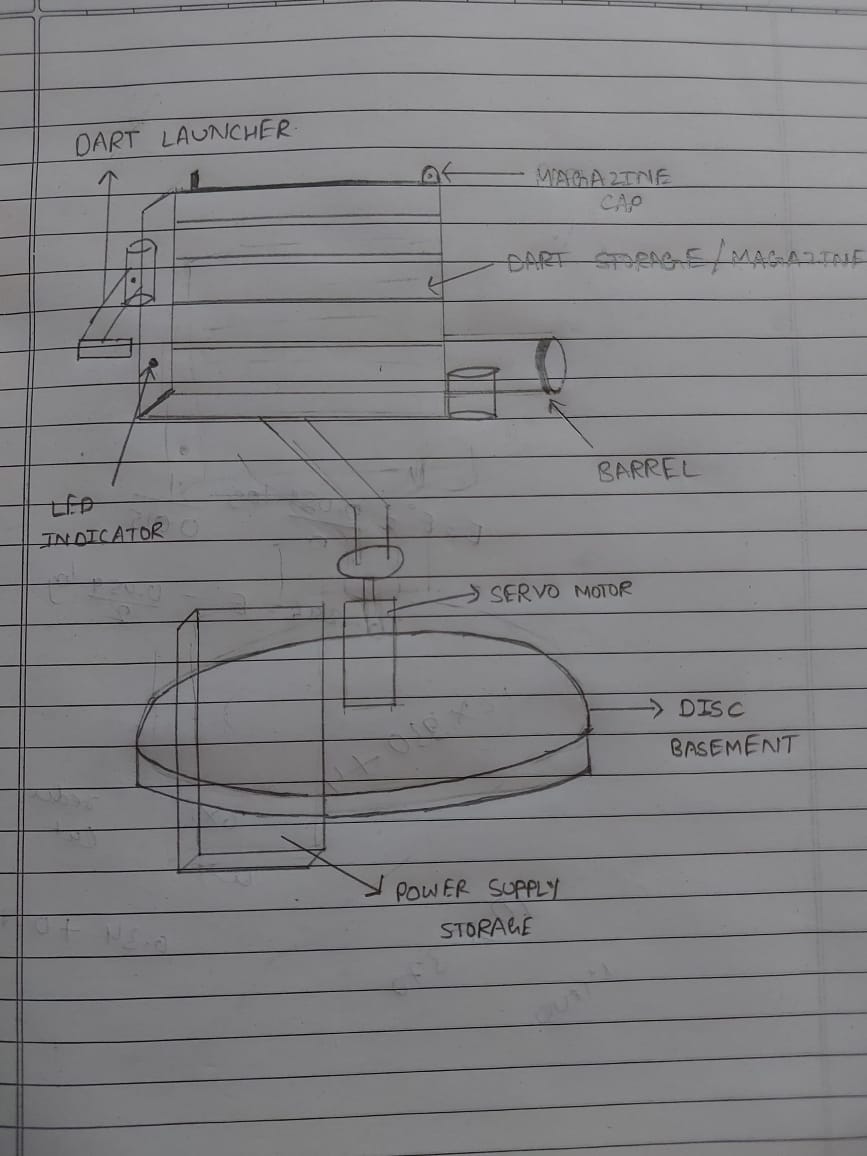 DART LAUNCHER
MAGAZINE
CAP
DART STORAGE/MAGAZINE
BARREL
LED
INDICATOR
SERVO MOTOR
DISC
BASEMENT
POWER SUPPLY
STORAGE